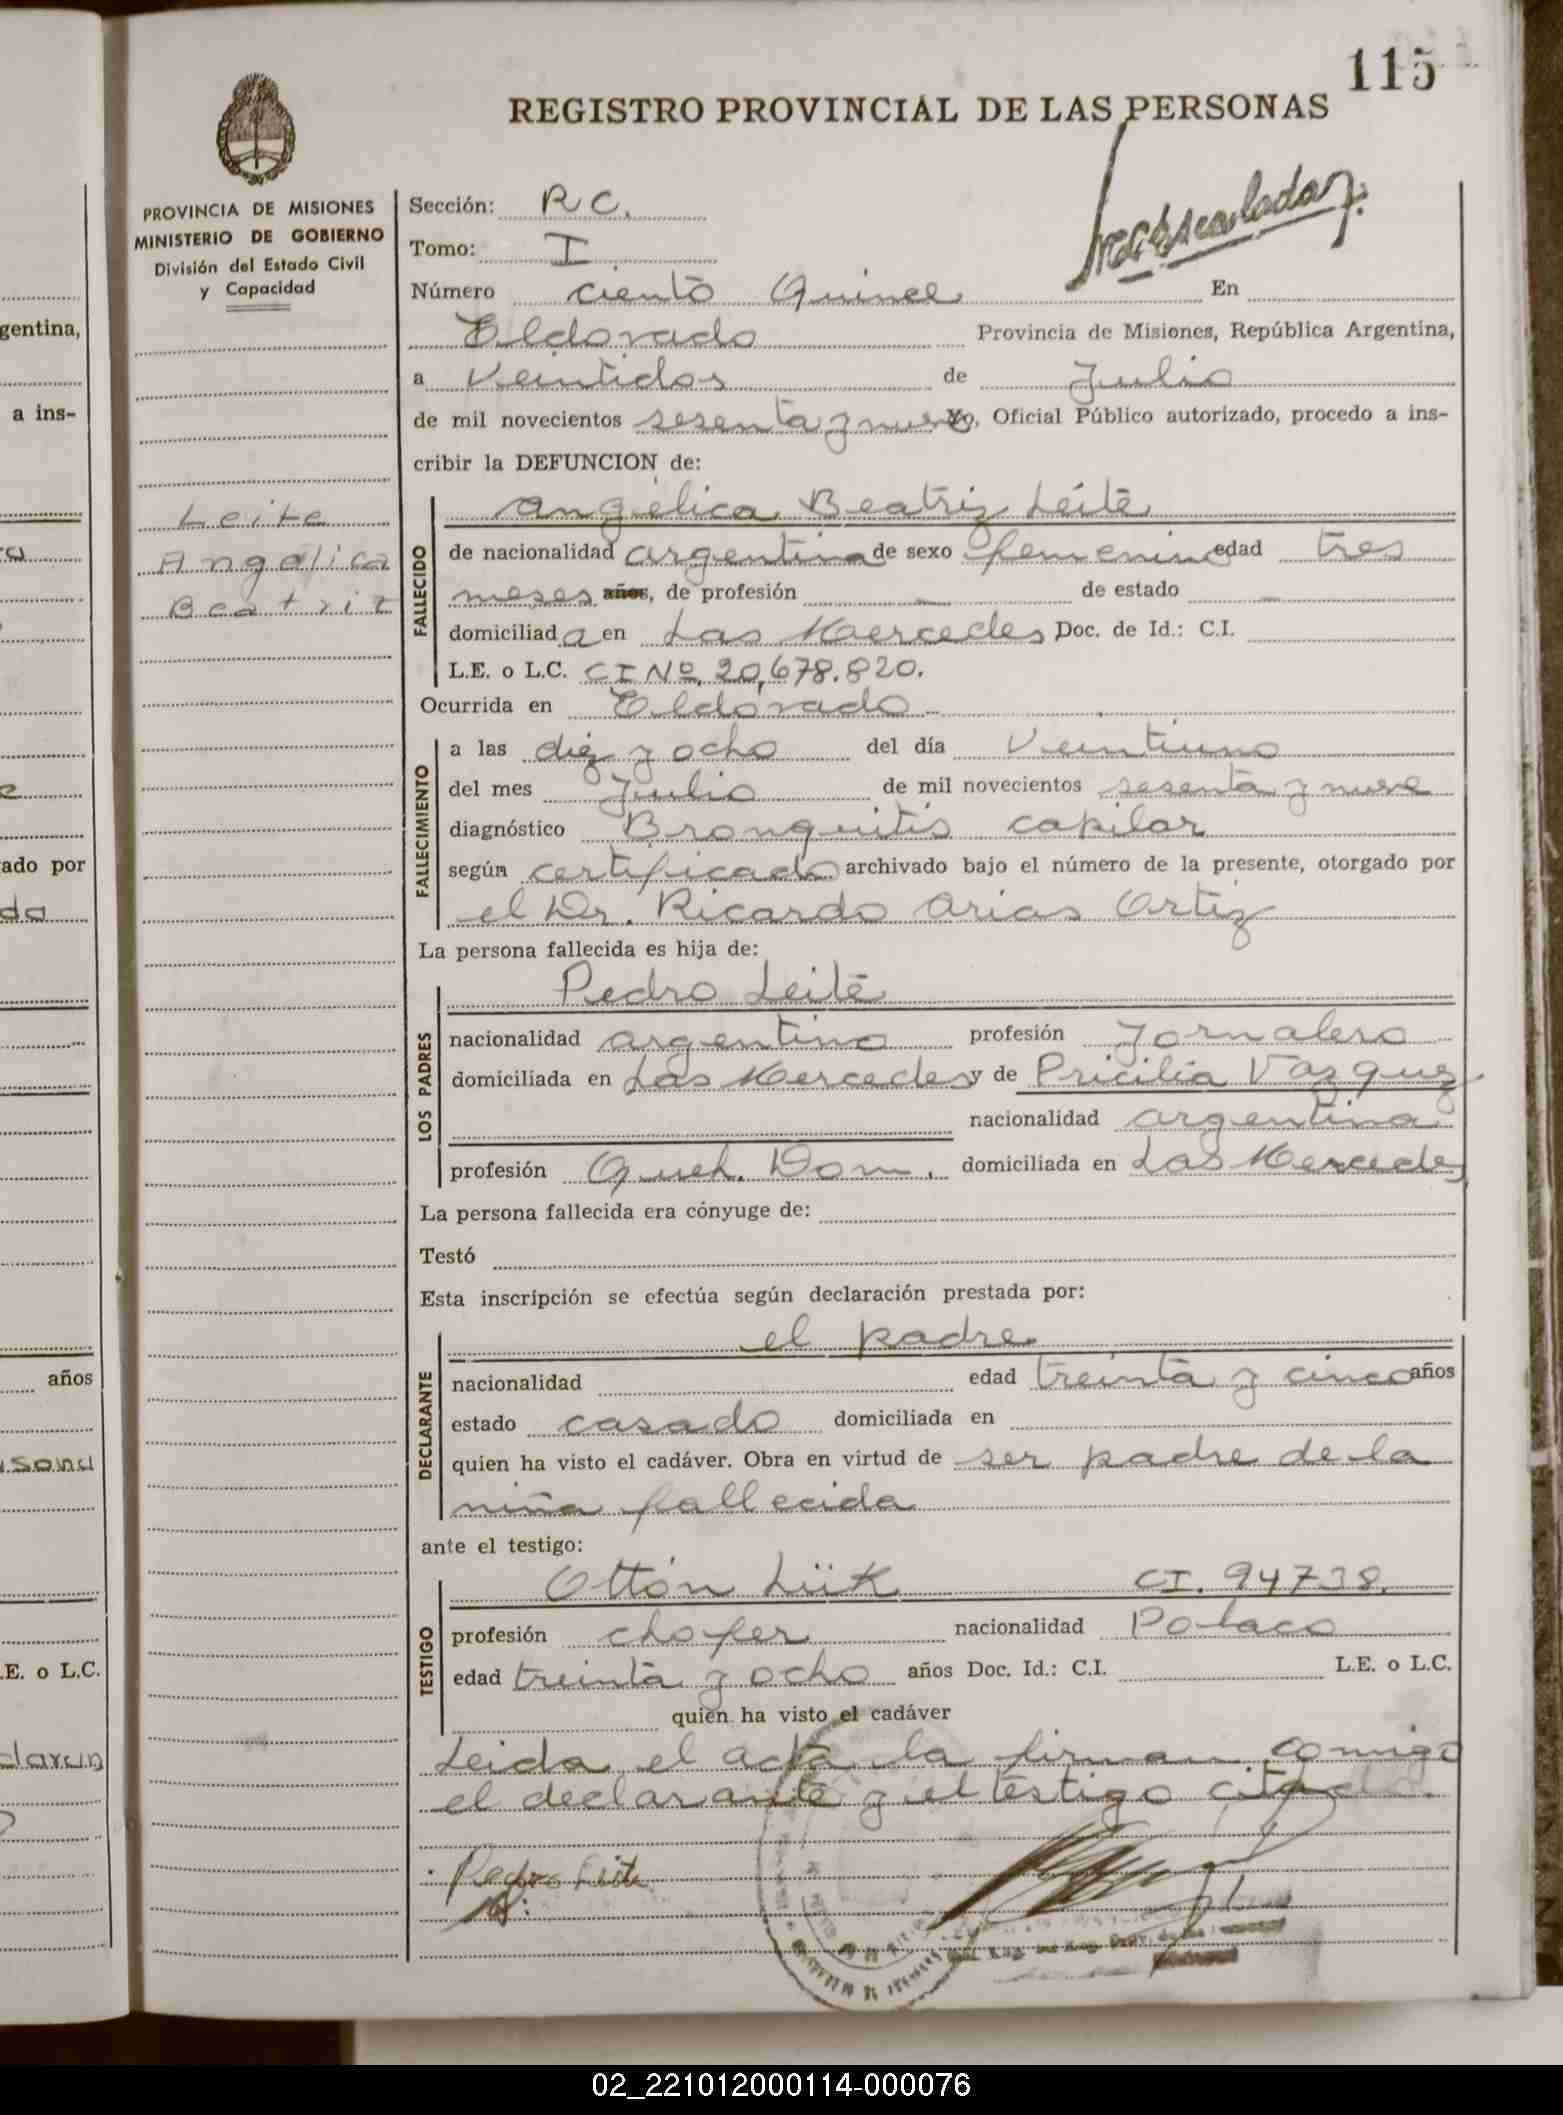 115
REGISTRO PROVINCIAL DE LAS PERSONAS
PROVINCIA DE MISIONES
MINISTERIO DE GOBIERNO
División del Estado Civil
y Capacidad
Leite
Angelica
Beatriz
Sección: R C.
Tomo: I
Número ciento Quince En
Eldorado Provincia de Misiones, República Argentina,
a Veintidos de Julio
de mil novecientos sesenta y nueve Yo, Oficial Público autorizado, procedo a ins-
cribir la DEFUNCION de:
FALLECIDO
Angélica Beatriz Leite
de nacionalidad argentina de sexo femenino edad tres
meses años, de profesión — de estado —
domiciliada en Las Mercedes Doc. de Id.: C.I.
L.E. o L.C. CI Nº 20,678.820.
Ocurrida en Eldorado
FALLECIMIENTO
a las diez y ocho del día Veintiuno
del mes Julio de mil novecientos sesenta y nueve
diagnóstico Bronquitis capilar
según certificado archivado bajo el número de la presente, otorgado por
el Dr. Ricardo Arias Ortiz
La persona fallecida es hija de:
LOS PADRES
Pedro Leite
nacionalidad argentino profesión Jornalero
domiciliada en Las Mercedes y de Pricilia Vazquez
nacionalidad argentina
profesión Queh. Dom. domiciliada en Las Mercedes
La persona fallecida era cónyuge de:
Testó
Esta inscripción se efectúa según declaración prestada por:
DECLARANTE
el padre
nacionalidad edad treinta y cinco años
estado casado domiciliada en
quien ha visto el cadáver. Obra en virtud de ser padre de la
niña fallecida
ante el testigo:
TESTIGO
Ottón Lük CI. 94738.
profesión chofer nacionalidad Polaco
edad treinta y ocho años Doc. Id.: C.I. L.E. o L.C.
quien ha visto el cadáver
Leida el acta la firman comigo
el declarante y el testigo citado.
Pedro Leite
gentina,
a ins-
ado por
años
.E. o L.C.
02_221012000114-000076